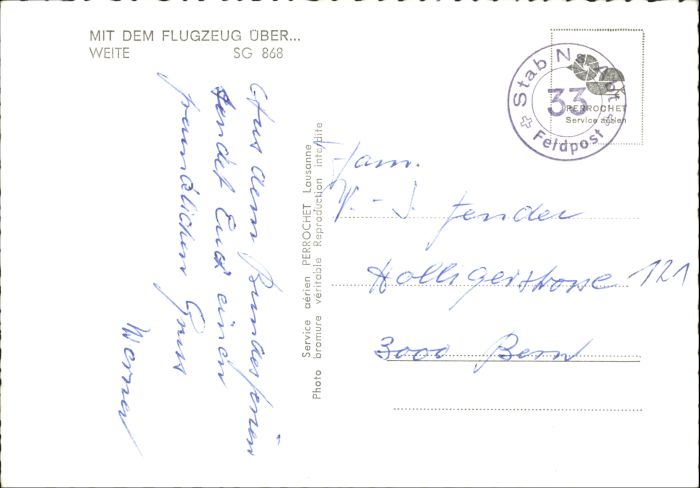 MIT DEM FLUGZEUG ÜBER...
WEITE SG 868
Aus dem Bundesferien
sendet Euch einen
freundlichen Gruss
Werner
Service aérien PERROCHET Lausanne
Photo bromure véritable Reproduction interdite
Stab Ns
33
Feldpost
PERROCHET
Service aérien
Fam.
Zender
Holligerstrasse 121
3000 Bern